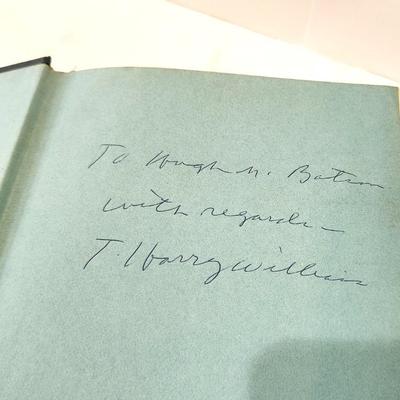 To Hugh N. Batson
with regards –
T. Harry Williams